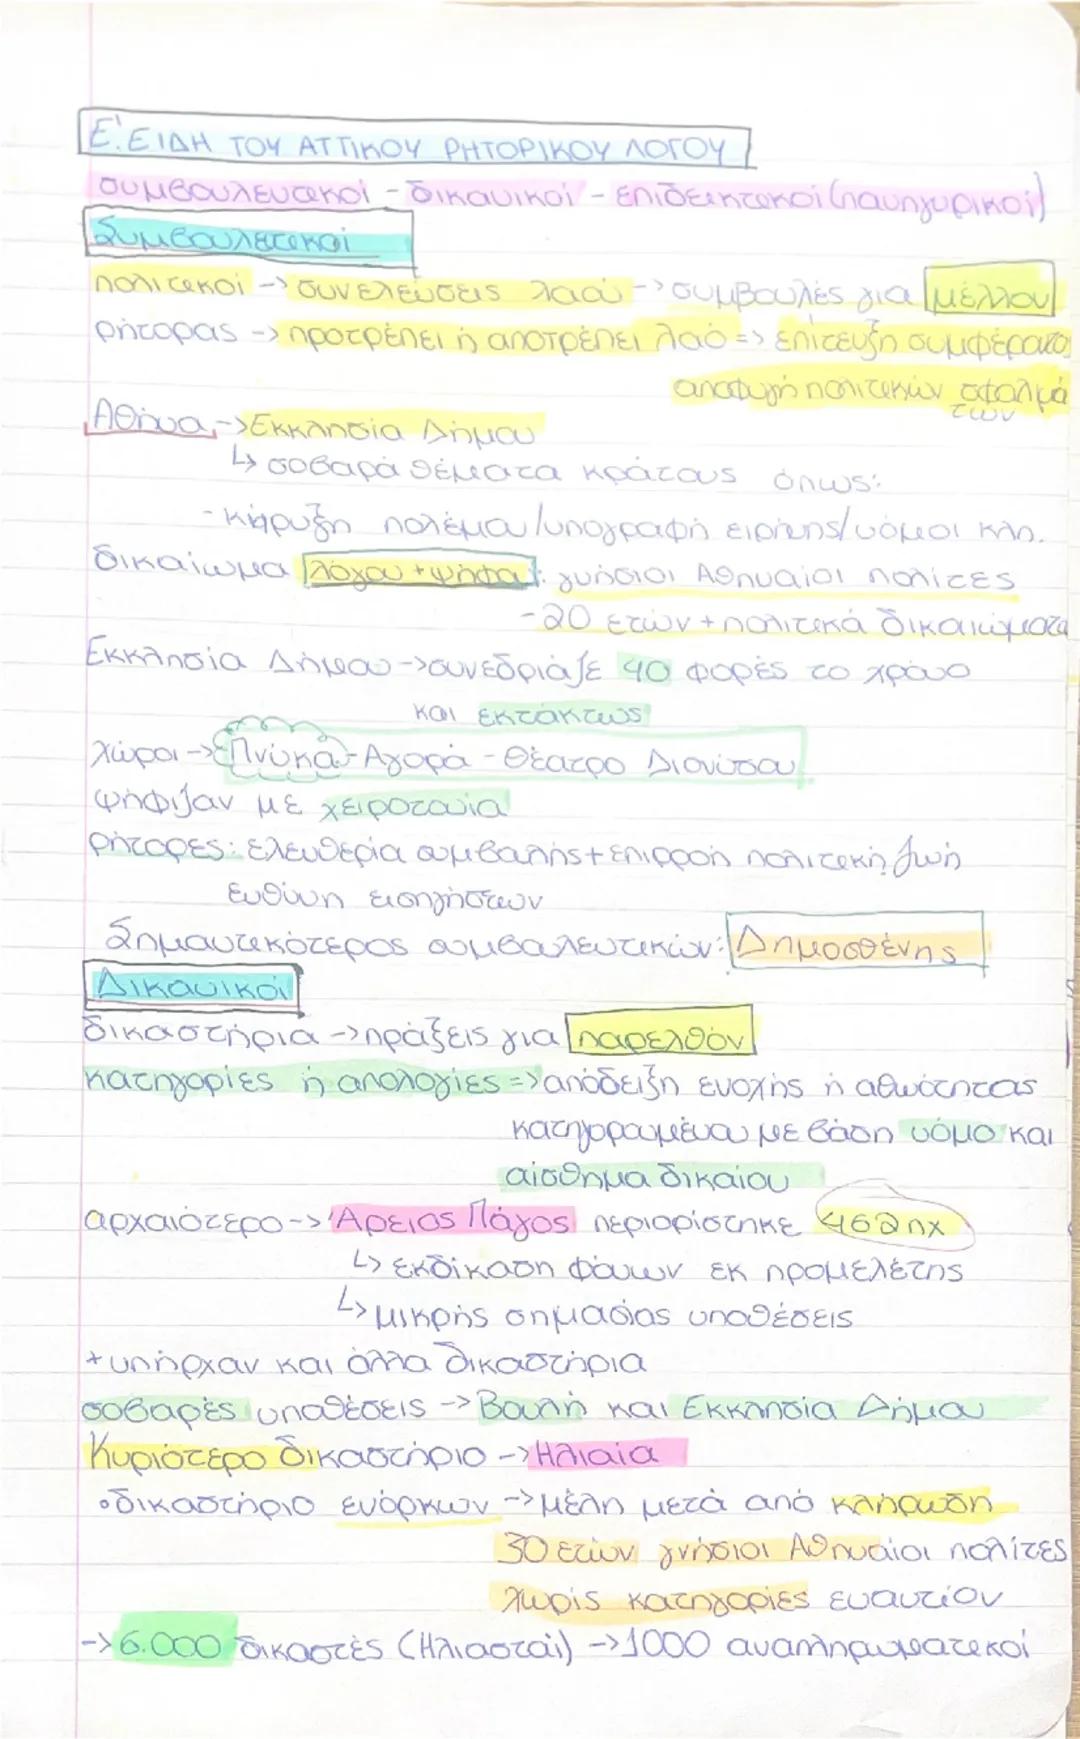 Ε'. ΕΙΔΗ ΤΟΥ ΑΤΤΙΚΟΥ ΡΗΤΟΡΙΚΟΥ ΛΟΓΟΥ
συμβουλευτικοί - δικανικοί - επιδεικτικοί (πανηγυρικοί)
Συμβουλετικοί
πολιτικοί -> συνελεύσεις λαού -> συμβουλές για μέλλον
ρήτορας -> προτρέπει ή αποτρέπει λαό => επίτευξη συμφέροντος
αποφυγή πολιτικών σφαλμά
των
Αθήνα -> Εκκλησία Δήμου
↳ σοβαρά θέματα κράτους όπως:
- κήρυξη πολέμου/υπογραφή ειρήνης/νόμοι κλπ.
δικαίωμα λόγου + ψήφου: γνήσιοι Αθηναίοι πολίτες
- 20 ετών + πολιτικά δικαιώματα
Εκκλησία Δήμου -> συνεδρίαζε 40 φορές το χρόνο
και εκτάκτως
Χώροι -> Πνύκα - Αγορά - Θέατρο Διονύσου
ψήφιζαν με χειροτονία
ρήτορες: ελευθερία συμβολής + επιρροή πολιτική ζωή
ευθύνη εισηγήσεων
Σημαντικότερος συμβουλευτικών: Δημοσθένης
Δικανικοί
δικαστήρια -> πράξεις για παρελθόν
κατηγορίες ή απολογίες => απόδειξη ενοχής ή αθωότητας
κατηγορουμένου με βάση νόμο και
αίσθημα δικαίου
αρχαιότερο -> Άρειος Πάγος περιορίστηκε 462 πχ
↳ εκδίκαση φόνων εκ προμελέτης
↳ μικρής σημασίας υποθέσεις
+ υπήρχαν και άλλα δικαστήρια
σοβαρές υποθέσεις -> Βουλή και Εκκλησία Δήμου
Κυριότερο δικαστήριο -> Ηλιαία
• δικαστήριο ενόρκων -> μέλη μετά από κλήρωση
30 ετών γνήσιοι Αθηναίοι πολίτες
χωρίς κατηγορίες εναντίον
-> 6.000 δικαστές (Ηλιασταί) -> 1000 αναπληρωματικοί